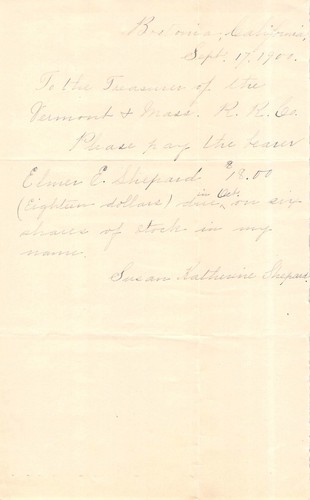 Pomona, California,
Sept. 17, 1901.
To the Treasurer of the
Vermont & Mass. R. R. Co.
Please pay the bearer
Elmer E. Shepard $18.00
(Eighteen dollars) due in Oct. on six
shares of stock in my
name.
Susan Katherine Shepard